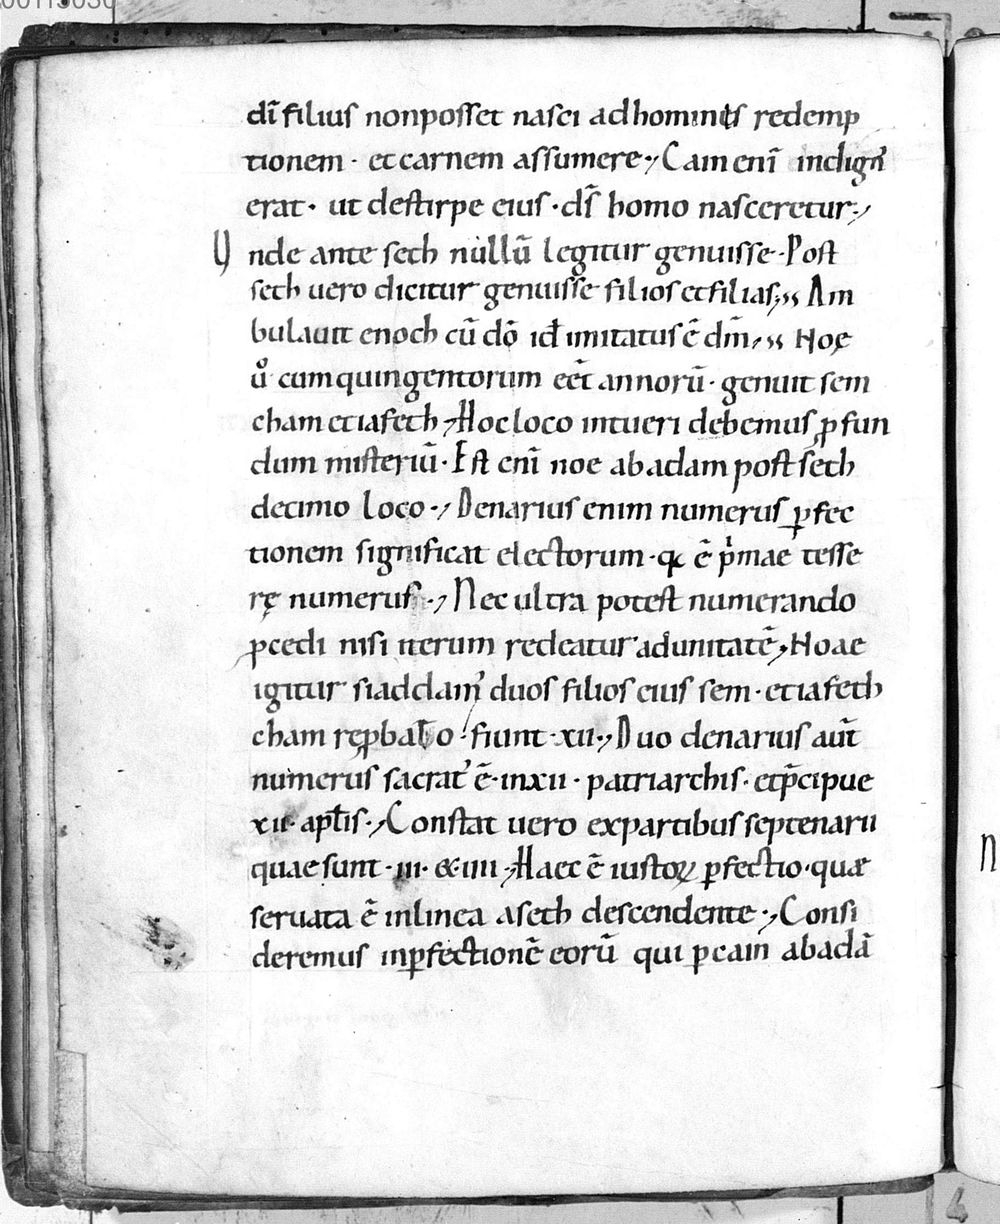 dī filius nonposset nasci adhominis redemp
tionem · etcarnem assumere ·, Cam enī indign'
erat · ut destirpe eius · ds̄ homo nasceretur ·,
Unde ante seth nullū legitur genuisse · Post
seth uero dicitur genuisse filios etfilias ·,, Am
bulauit enoch cū dō id÷ imitatus ē dm̄ ·,, Noę
uͦ cum quingentorum eēt annorū · genuit sem
cham etiafeth ·, Hocloco intueri debemus ꝓfun
dum misteriū · Est enī noe abadam post seth
decimo loco ·, Denarius enim numerus ꝑfec
tionem significat electorum · q ē pͥmae tesse
rę numerus ·, Nec ultra potest numerando
ꝓcedi nisi iterum redeatur adunitatē ·, Noae
igitur siaddam' duos filios eius sem · etiafeth
cham reꝓbato · fiunt · xii ·, Duo denarius aūt
numerus sacrat' ē · inxii · patriarchis · etp̄cipue
xii · aptīs ·, Constat uero expartibus septenarii
quae sunt · iii · & iiii ·, Haec ē iustoꝝ ꝑfectio · quae
seruata ē inlinea aseth descendente ·, Consi
deremus inꝑfectionē eorū qui ꝑcain abadā